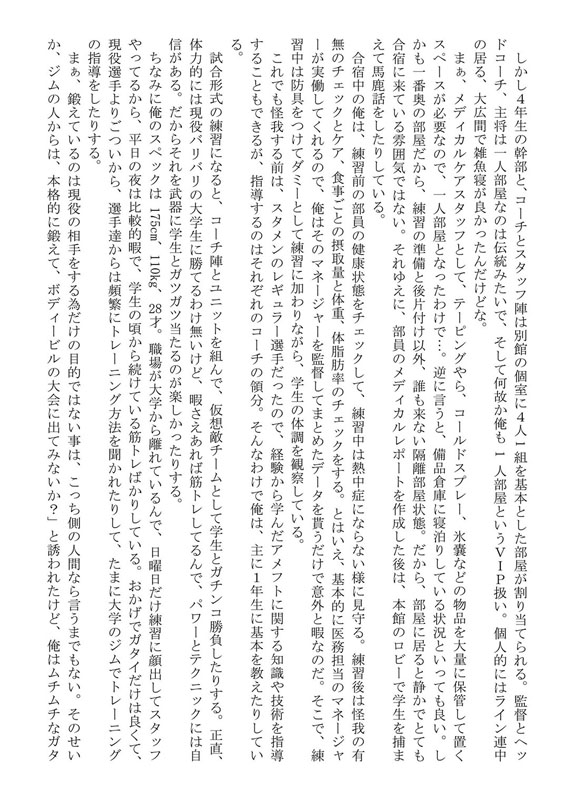 しかし４年生の幹部と、コーチとスタッフ陣は別館の個室に４人１組を基本とした部屋が割り当てられる。監督とヘッ
ドコーチ、主将は一人部屋なのは伝統みたいで、そして何故か俺も１人部屋というＶＩＰ扱い。個人的にはライン連中
の居る、大広間で雑魚寝が良かったんだけどな。
　まぁ、メディカルケアスタッフとして、テーピングやら、コールドスプレー、氷嚢などの物品を大量に保管して置く
スペースが必要なので、一人部屋となったわけで…。逆に言うと、備品倉庫に寝泊りしている状況といっても良い。し
かも一番奥の部屋だから、練習の準備と後片付け以外、誰も来ない隔離部屋状態。だから、部屋に居ると静かでとても
合宿に来ている雰囲気ではない。それゆえに、部員のメディカルレポートを作成した後は、本館のロビーで学生を捕ま
えて馬鹿話をしたりしている。
　合宿中の俺は、練習前の部員の健康状態をチェックして、練習中は熱中症にならない様に見守る。練習後は怪我の有
無のチェックとケア、食事ごとの摂取量と体重、体脂肪率のチェックをする。とはいえ、基本的に医務担当のマネージャ
ーが実働してくれるので、俺はそのマネージャーを監督してまとめたデータを貰うだけで意外と暇なのだ。そこで、練
習中は防具をつけてダミーとして練習に加わりながら、学生の体調を観察している。
　これでも怪我する前は、スタメンのレギュラー選手だったので、経験から学んだアメフトに関する知識や技術を指導
することもできるが、指導するのはそれぞれのコーチの領分。そんなわけで俺は、主に１年生に基本を教えたりしてい
る。
　試合形式の練習になると、コーチ陣とユニットを組んで、仮想敵チームとして学生とガチンコ勝負したりする。正直、
体力的には現役バリバリの大学生に勝てるわけ無いけど、暇さえあれば筋トレしてるんで、パワーとテクニックには自
信がある。だからそれを武器に学生とガツガツ当たるのが楽しかったりする。
　ちなみに俺のスペックは175㎝、110㎏、28才。職場が大学から離れているんで、日曜日だけ練習に顔出してスタッフ
やってるから、平日の夜は比較的暇で、学生の頃から続けている筋トレばかりしている。おかげでガタイだけは良くて、
現役選手よりごついから、選手達からは頻繁にトレーニング方法を聞かれたりして、たまに大学のジムでトレーニング
の指導をしたりする。
　まぁ、鍛えているのは現役の相手をする為だけの目的ではない事は、こっち側の人間なら言うまでもない。そのせい
か、ジムの人からは、本格的に鍛えて、ボディービルの大会に出てみないか？」と誘われたけど、俺はムチムチなガタ